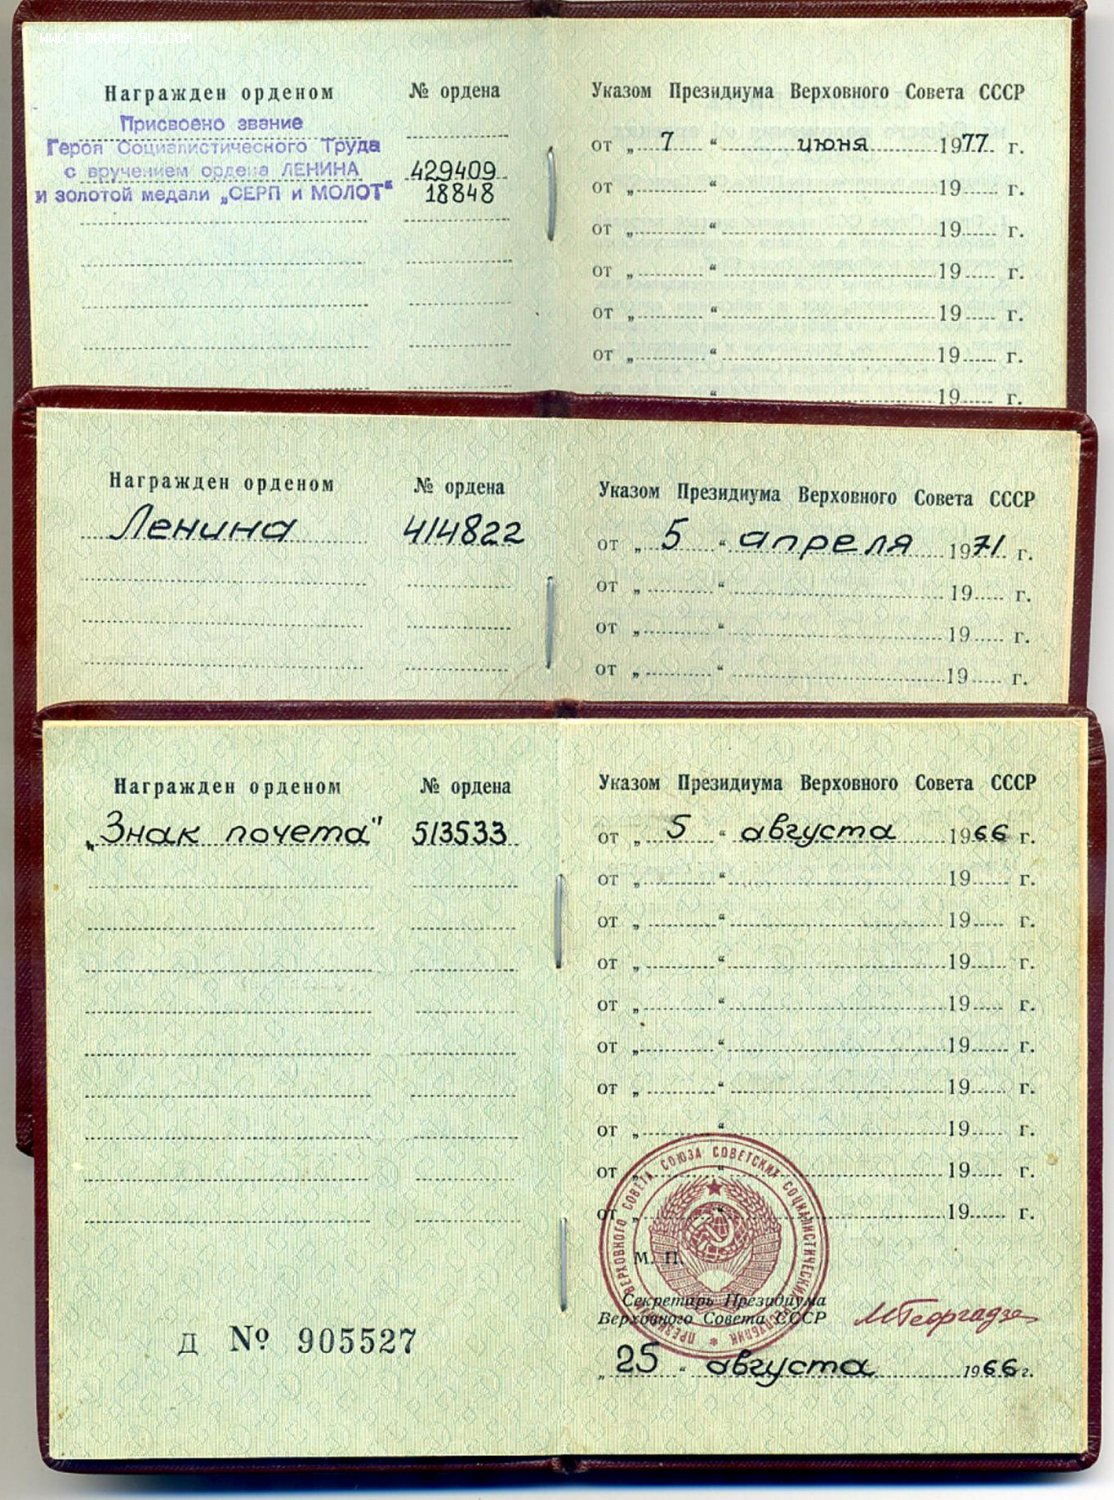 WWW.FORUMS-SU.COM
Награжден орденом № ордена Указом Президиума Верховного Совета СССР
Присвоено звание
Героя Социалистического Труда от „ 7 “ июня 1977 г.
с вручением ордена ЛЕНИНА 429409 от „ “ 19 г.
и золотой медали „СЕРП и МОЛОТ“ 18848
от „ “ 19 г.
от „ “ 19 г.
от „ “ 19 г.
от „ “ 19 г.
от „ “ 19 г.
Награжден орденом № ордена Указом Президиума Верховного Совета СССР
Ленина 414822 от „ 5 “ апреля 1971 г.
от „ “ 19 г.
от „ “ 19 г.
от „ “ 19 г.
Награжден орденом № ордена Указом Президиума Верховного Совета СССР
„Знак почета" 513533 от „ 5 “ августа 1966 г.
от „ “ 19 г.
от „ “ 19 г.
от „ “ 19 г.
от „ “ 19 г.
от „ “ 19 г.
от „ “ 19 г.
от „ “ 19 г.
от „ “ 19 г.
от „ “ 19 г.
ПРЕЗИДИУМ ВЕРХОВНОГО СОВЕТА СОЮЗА СОВЕТСКИХ СОЦИАЛИСТИЧЕСКИХ РЕСПУБЛИК
М. П.
Секретарь Президиума
Верховного Совета СССР М Георгадзе
Д № 905527
„ 25 “ августа 1966 г.